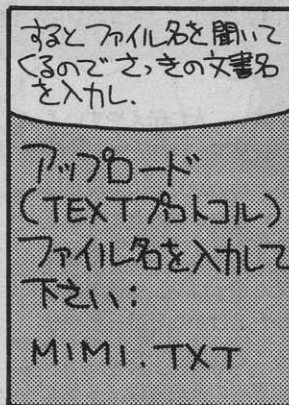 するとファイル名を聞いて
くるのでさっきの文書名
を入力し．
アップロード
(TEXTプロトコル)
ファイル名を入力して
下さい：
MIMI．TXT